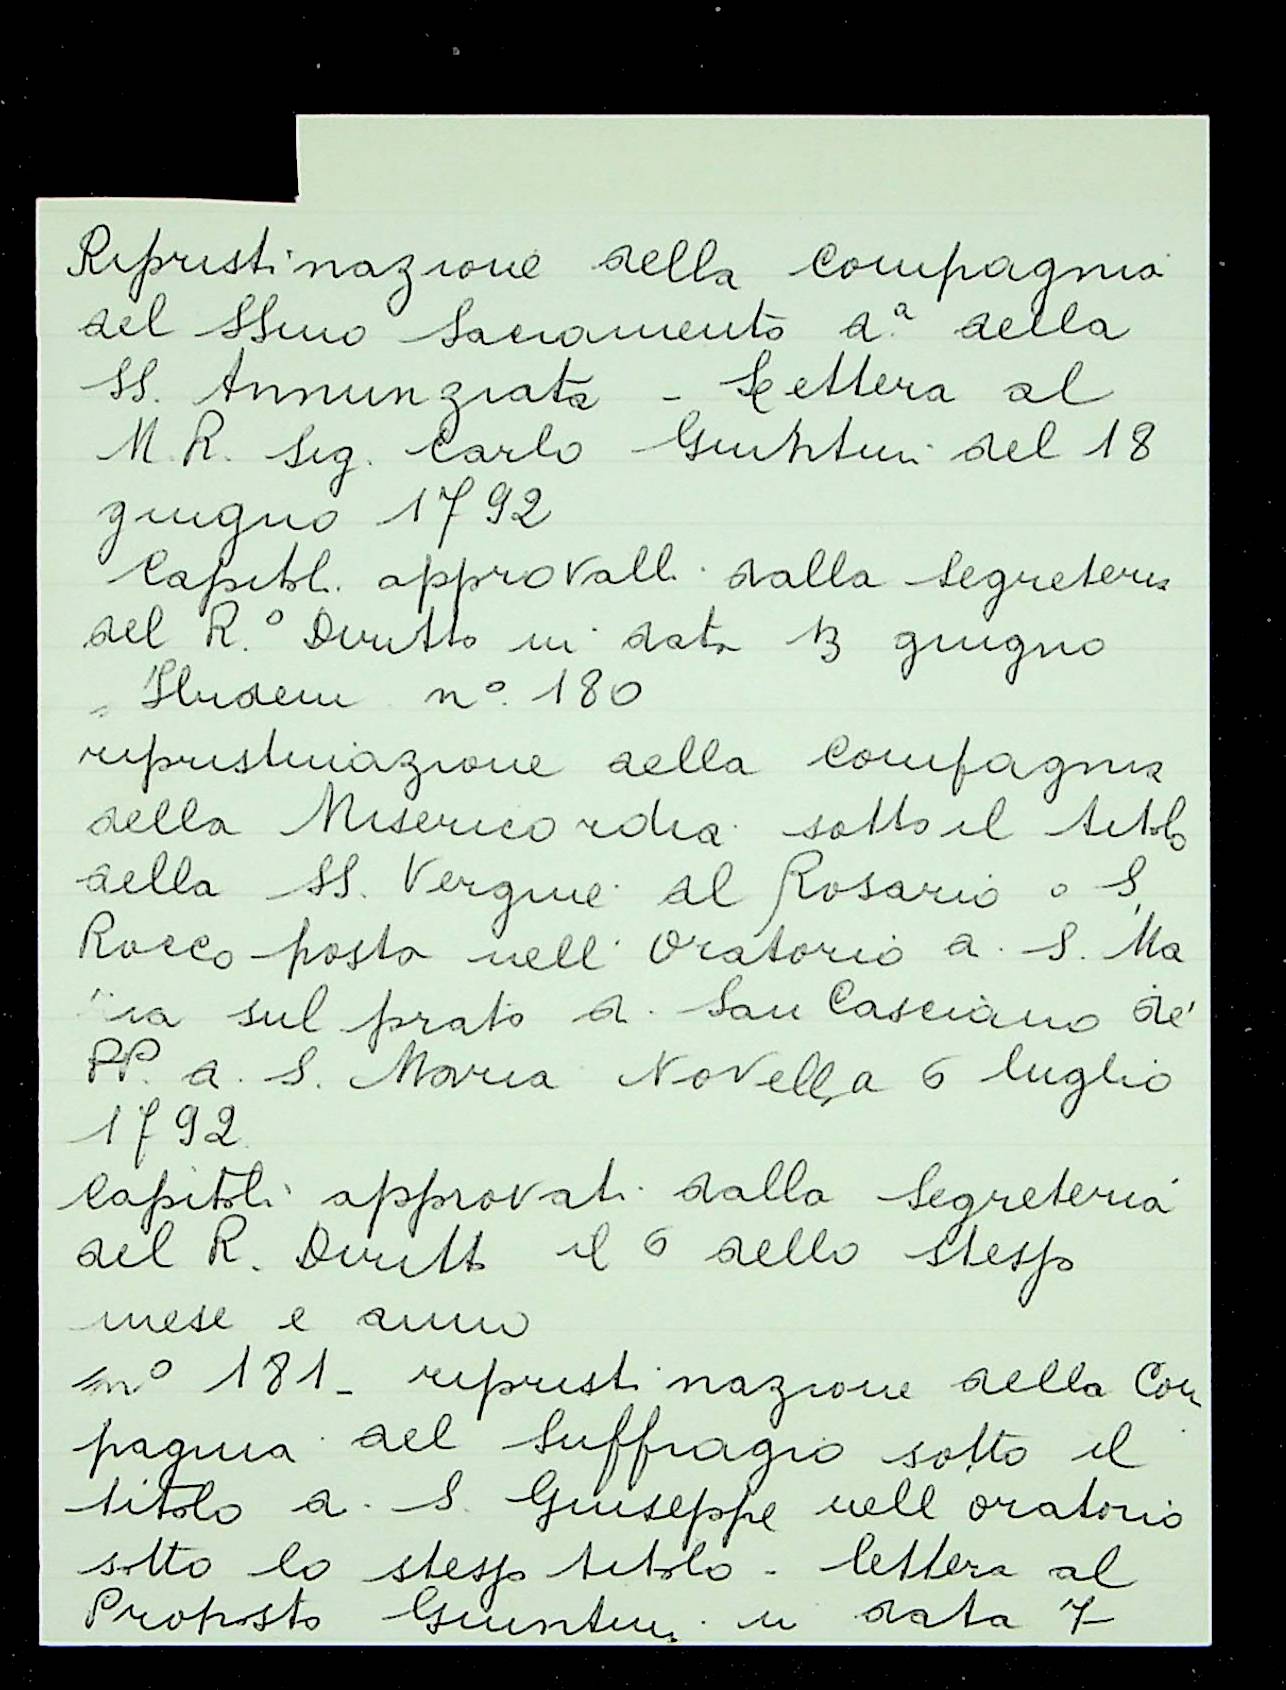 Ripristinazione della Compagnia
del SSmo Sacramento d.ª della
SS. Annunziata - Lettera al
M.R. Sig. Carlo Giuntini del 18
giugno 1792
Capitoli approvati dalla Segreteria
del R.º Diritto in data 13 giugno
Ibidem nº. 180
ripristinazione della Compagnia
della Misericordia sotto il titolo
della SS. Vergine del Rosario o S.
Rocco posta nell'Oratorio di S. Ma
ria sul prato di San Casciano de'
PP. di S. Maria Novella 6 luglio
1792
Capitoli approvati dalla Segreteria
del R. Diritto il 6 dello stesso
mese e anno
nº 181 - ripristinazione della Com
pagnia del Suffragio sotto il
titolo di S. Giuseppe nell'oratorio
sotto lo stesso titolo - lettera al
Proposto Giuntini in data 7